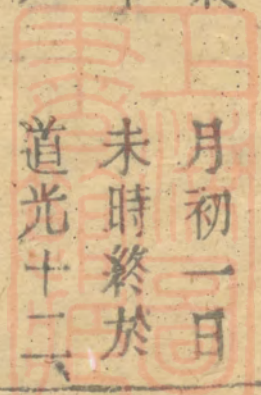 月初一日
未時終於
道光十二